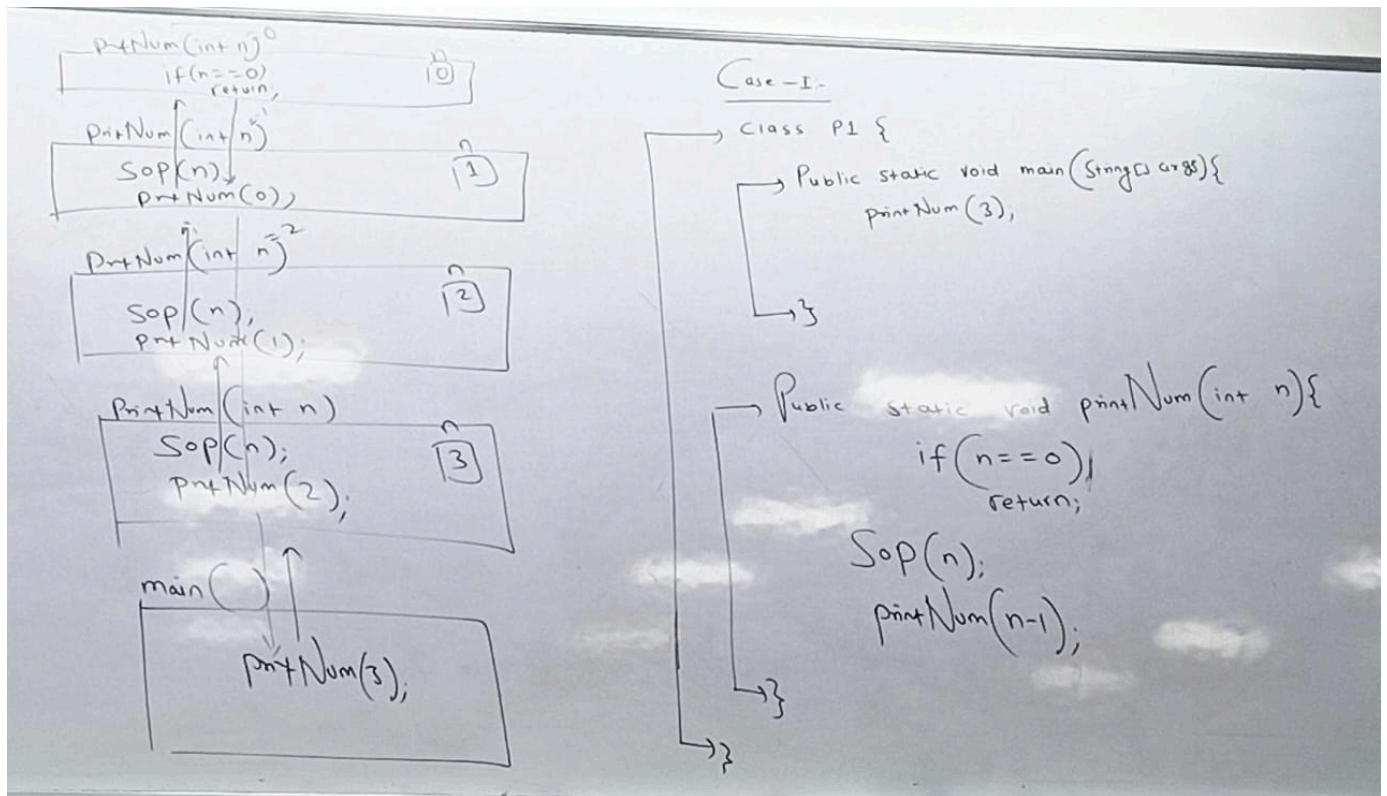 prtNum(int n)=0
n
if(n==0)
0
return;
pritNum(int n)=1
n
Sop(n);
1
prtNum(0);
PrtNum(int n)=2
n
2
Sop(n);
prtNum(1);
PrintNum(int n)
n
Sop(n);
3
prtNum(2);
main( )
pritNum(3);
Case-I-
class P1 {
Public static void main(String[] args){
printNum(3);
}
Public static void printNum(int n){
if(n==0)
return;
Sop(n);
printNum(n-1);
}
}